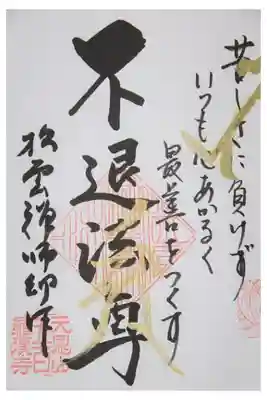 苦しさに負けず
いつも心あかるく
最善をつくす
不退法尊
松雲禅師御作